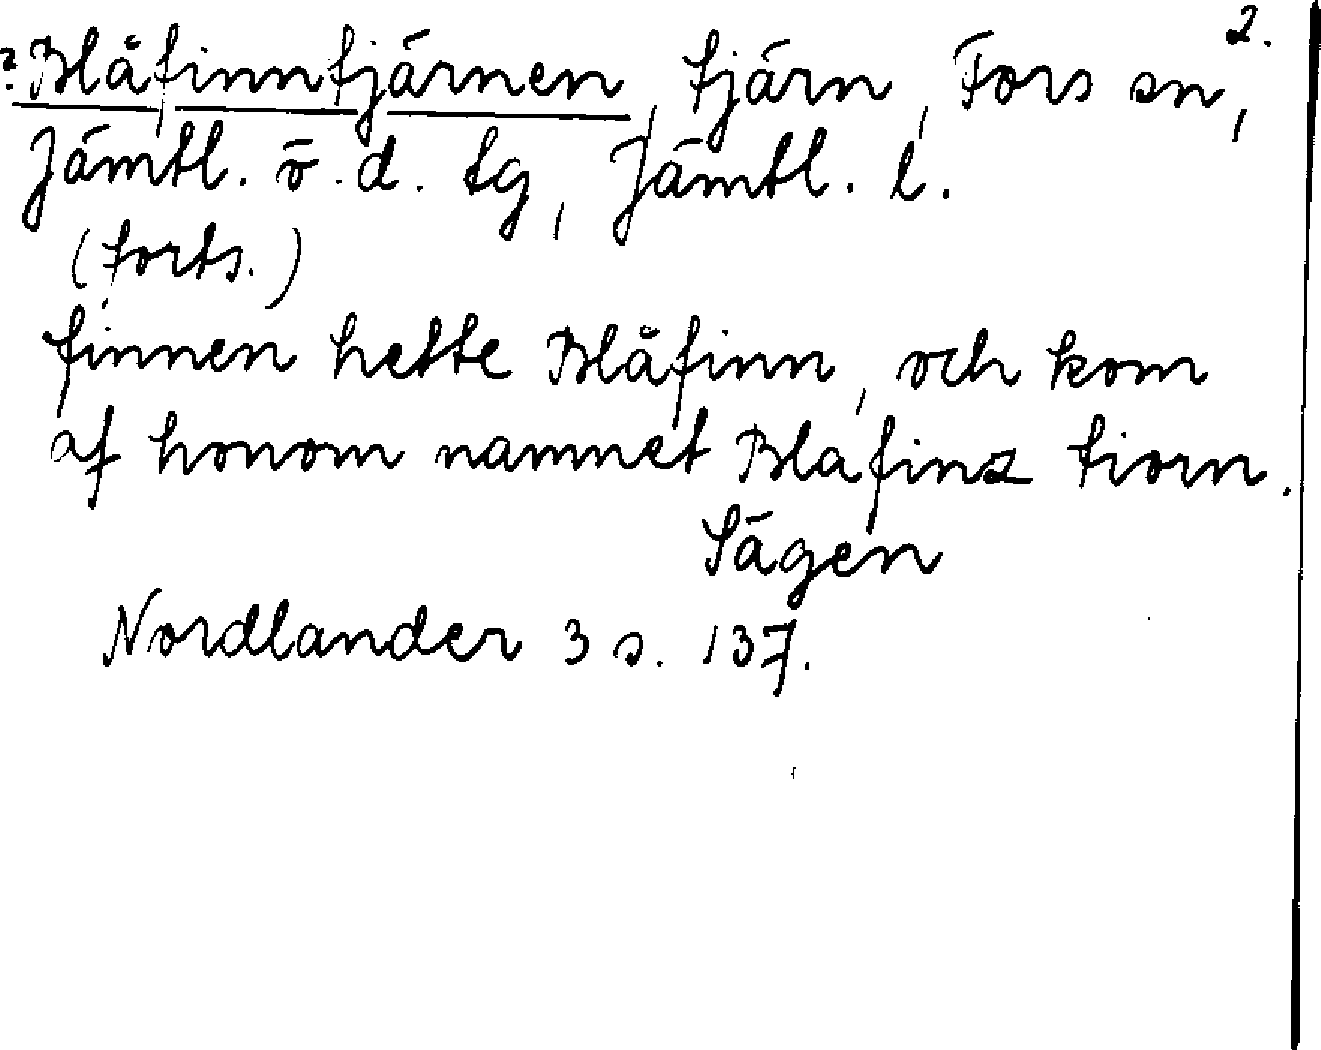 2.
? Blåfinntjärnen, tjärn, Fors sn,
Jämtl. ö. d. tg, Jämtl. l.
(forts.)
finnen hette Blåfinn, och kom
af honom namnet Blafinz tiorn.
Sägen
Nordlander 3 s. 137.